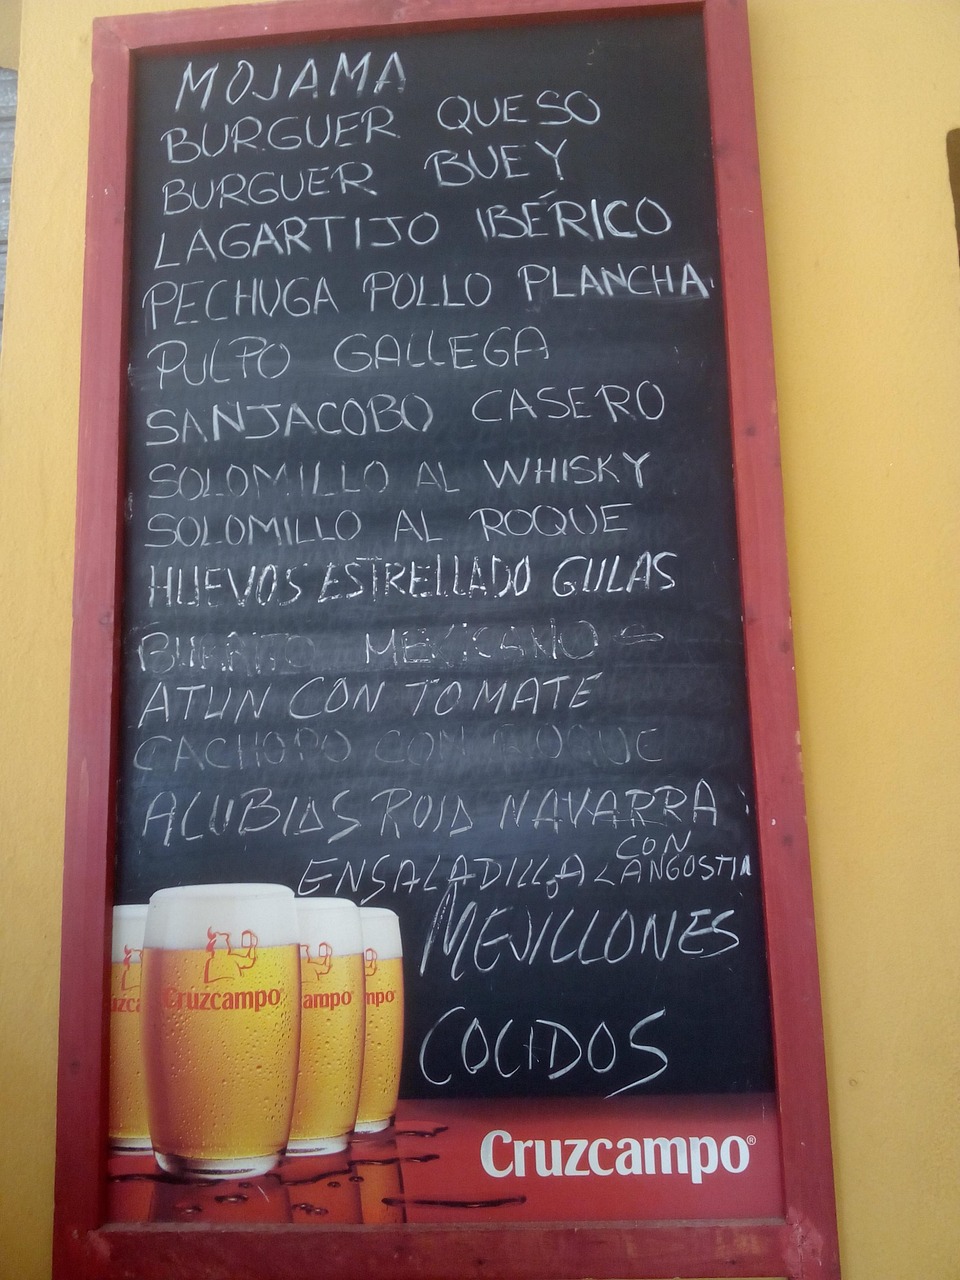 MOJAMA
BURGUER QUESO
BURGUER BUEY
LAGARTIJO IBÉRICO
PECHUGA POLLO PLANCHA
PULPO GALLEGA
SANJACOBO CASERO
SOLOMILLO AL WHISKY
SOLOMILLO AL ROQUE
HUEVOS ESTRELLADO GULAS
BURRITO MEXICANO
ATUN CON TOMATE
CACHOPO CON ROQUE
ALUBIAS ROJA NAVARRA
CON
ENSALADILLA LANGOSTIN
MEJILLONES
COCIDOS
Cruzcampo
Cruzcampo®